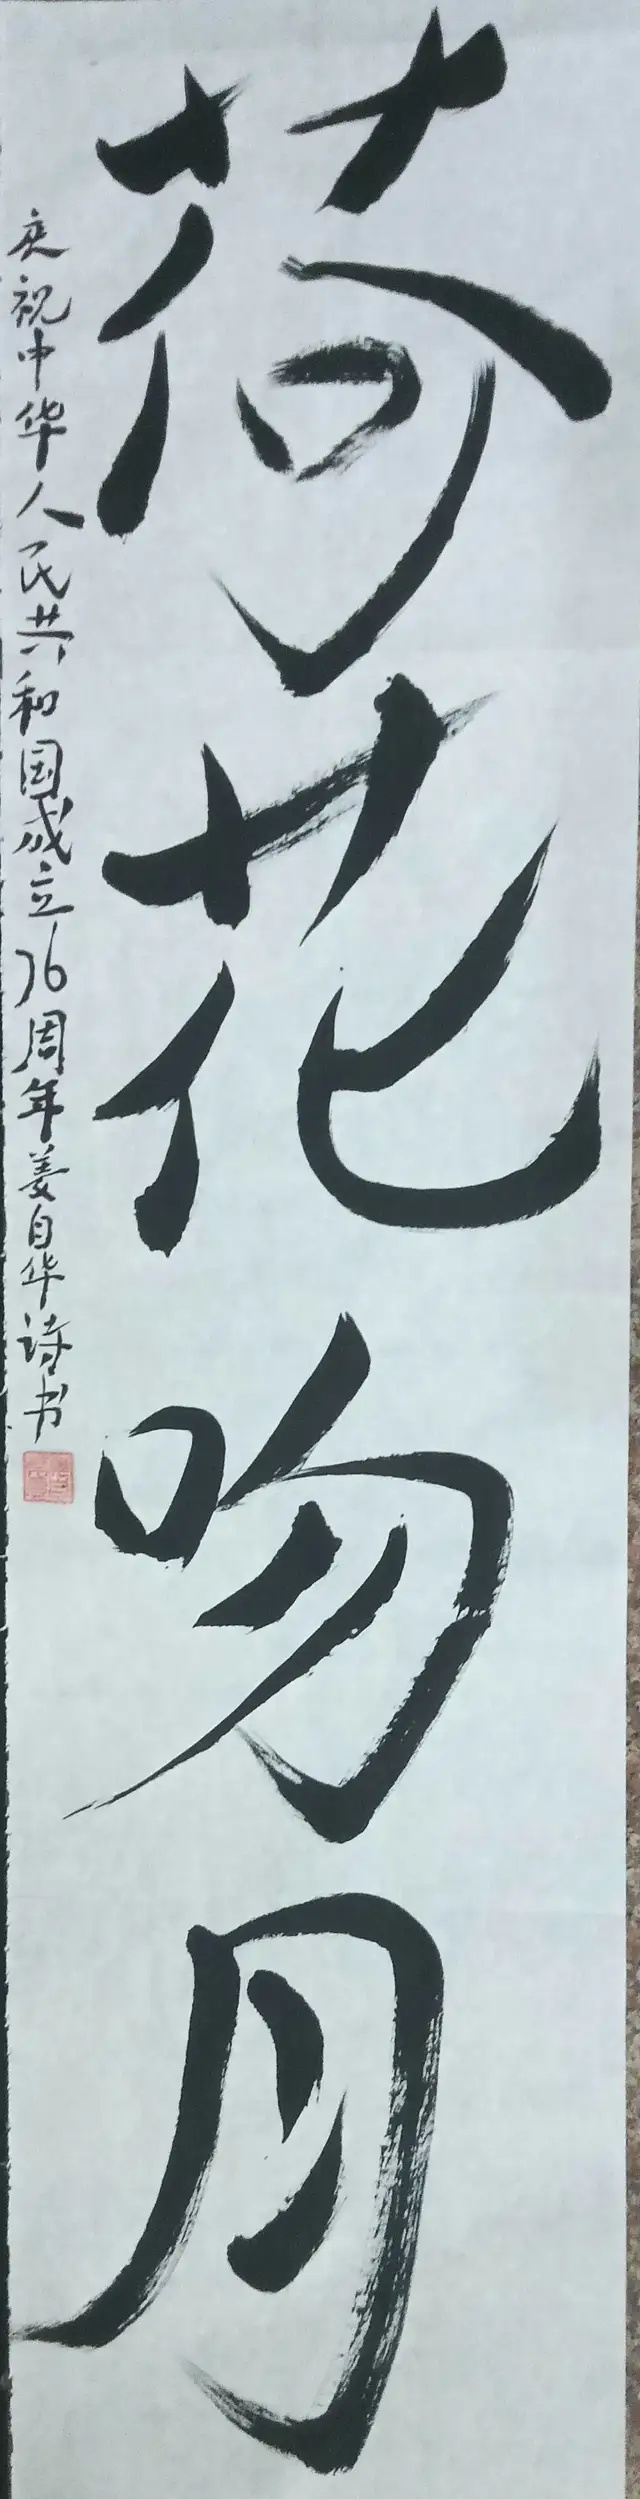 荷花吻月
庆祝中华人民共和国成立76周年姜自华诗书